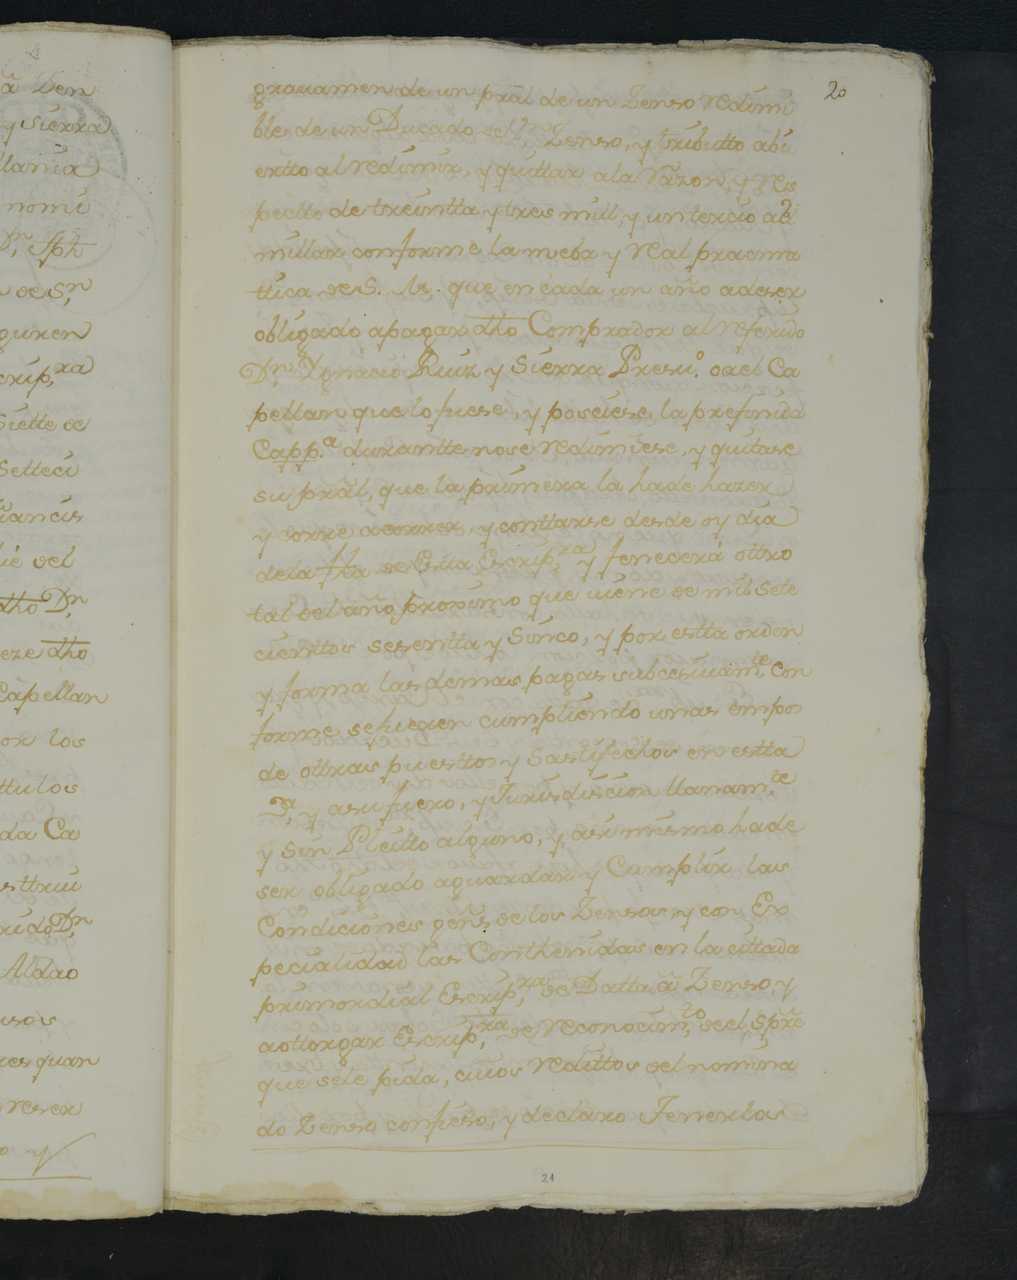 ã Zen
y Sierra
llania
nomi
Dn. Jph
de Sn,
guren
crip,ra
Siette de
Setteci
ancis
del
dho Dn
dho
Capellan
or los
ttulos
da Ca
rido Dn
Aldao
usos
res quan
20
grauamen de un prãl de un Zenso redimi
ble de un Ducado de Zenso, y tributto abi
ertto al redimir, y quittar a la razon, y res
pectto de treintta y tres mill, y un tercio al
millar conforme la nueba y real pracma
ttica de S. M. que en cada un año a de ser
obligado a pagar dho Comprador al referido
Dn Ygnacio Ruiz y Sierra Presu.º o a el Ca
pellan que lo fuese, y poseiese, la prefinida
Capp.ª durantte no se redimiese, y quitase
su prãl, que la primera la ha de hazer
y corre a correr, y conttarse desde oy dia
de la fha de Estta Escrip,ra y fenecerá ottro
tal del año proximo que viene de mil sete
cienttos sesentta y Sinco, y por estta orden
y forma las demas pagas subcesiuam,te con
forme se fueren cumpliendo unas empos
de ottras puesttos y Sattisfechos en estta
y a su fuero, y Jurisdiscion llanam,te
y sin Pleitto alguno, y asi mismo ha de
ser obligado a guardar y Cumplir las
Condiciones geñs de los Zensos, y con Ex
pecialidad las Conthenidas en la cittada
primordial Escrip,ra de Datta ã Zenso, y
a ottorgar Escrip,ra de reconocim,to de el, spre
que se le pida, cuios redittos del nomina
do Zenso confieso, y declaro Tenerlos
21